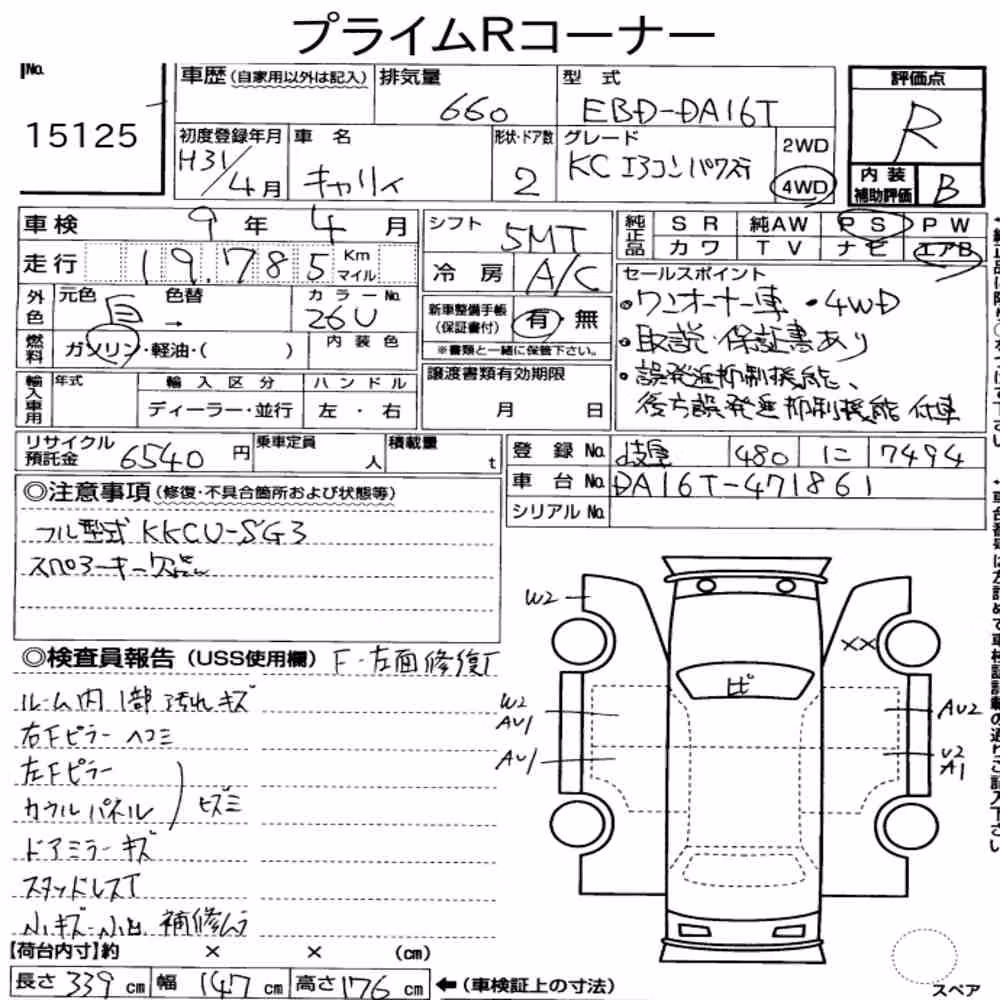 プライムRコーナー
No. 15125
車歴(自家用以外は記入) 排気量 660 型式 EBD-DA16T
評価点 R
内装補助評価 B
初度登録年月 H31/4月 車名 キャリィ 形状・ドア数 2 グレード KC エアコンパワステ 2WD 4WD
車検 9年 4月
走行 19,785 Km マイル
外色 元色 白 → 色替 カラーNo. 26U
燃料 ガソリン・軽油・( ) 内装色
輸入車用 年式 輸入区分 ディーラー・並行 ハンドル 左・右
シフト 5MT
冷房 A/C
新車整備手帳(保証書付) 有・無
※書類と一緒に保管下さい。
譲渡書類有効期限 月 日
純正品 SR 純AW PS PW
カワ TV ナビ エアB
セールスポイント
・ワンオーナー車 ・4WD
・取説・保証書あり
・誤発進抑制機能、
後方誤発進抑制機能付車
リサイクル預託金 6540円 乗車定員 人 積載量 t
登録No. 岐阜 480 に 7494
車台No. DA16T-471861
シリアルNo.
◎注意事項(修復・不具合箇所および状態等)
フル型式 KKCU-SG3
スペアキー欠品
◎検査員報告(USS使用欄) F・左面修復歴
ルーム内1部汚れキズ
右Fピラーヘコミ
左Fピラー
カウルパネル
ヒズミ
ドアミラーキズ
スタッドレスT
小キズ・小凹 補修ムラ
【荷台内寸】約 × × (cm)
長さ 339 cm 幅 147 cm 高さ 176 cm ←(車検証上の寸法)
W2
××
ヒビ
W2
AU1
AU1
AU2
U2
A1
スペア